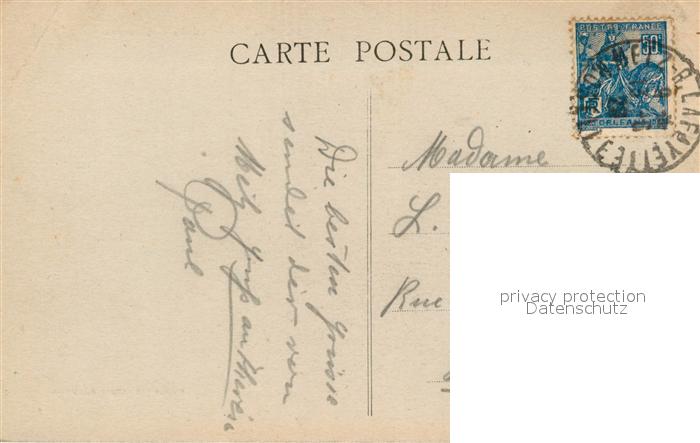 CARTE POSTALE
POSTES FRANCE
50
ORLEANS
METZ-R. LAFAYETTE
Die besten Grüsse
sendet dir von
Metz Gruß an Theresia
Paul
Madame
L.
Rue
privacy protection
Datenschutz